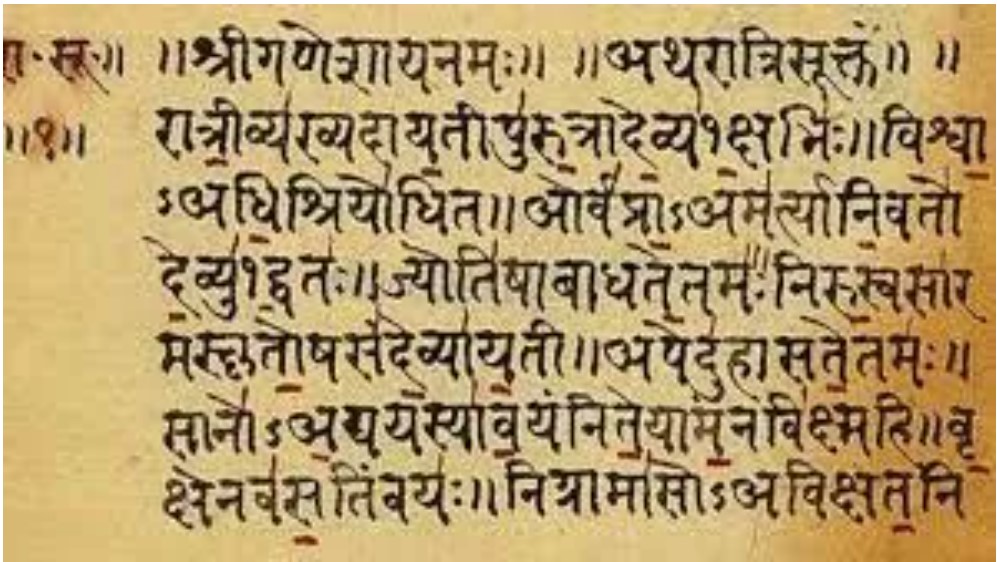 रा॰सू॰॥ ॥श्रीगणेशायनमः॥ ॥अथरात्रिसूक्तं॥ ॥
॥१॥ रात्रीव्यख्यदायतीपुरुत्रादेव्य१क्षभिः॥विश्वा
ऽअधिश्रियोधित॥ओर्वप्राऽअमर्त्यानिवतो
देव्यु१द्वतः॥ज्योतिषाबाधतेतमः॥निरुस्वसार
मस्कृतोषसंदेव्यायती॥अपेदुहासतेतमः॥
सानोऽअद्ययस्यावयंनितेयामन्नविक्ष्महि॥वृ
क्षेनवसतिंवयः॥निग्रामासोऽअविक्षतनि